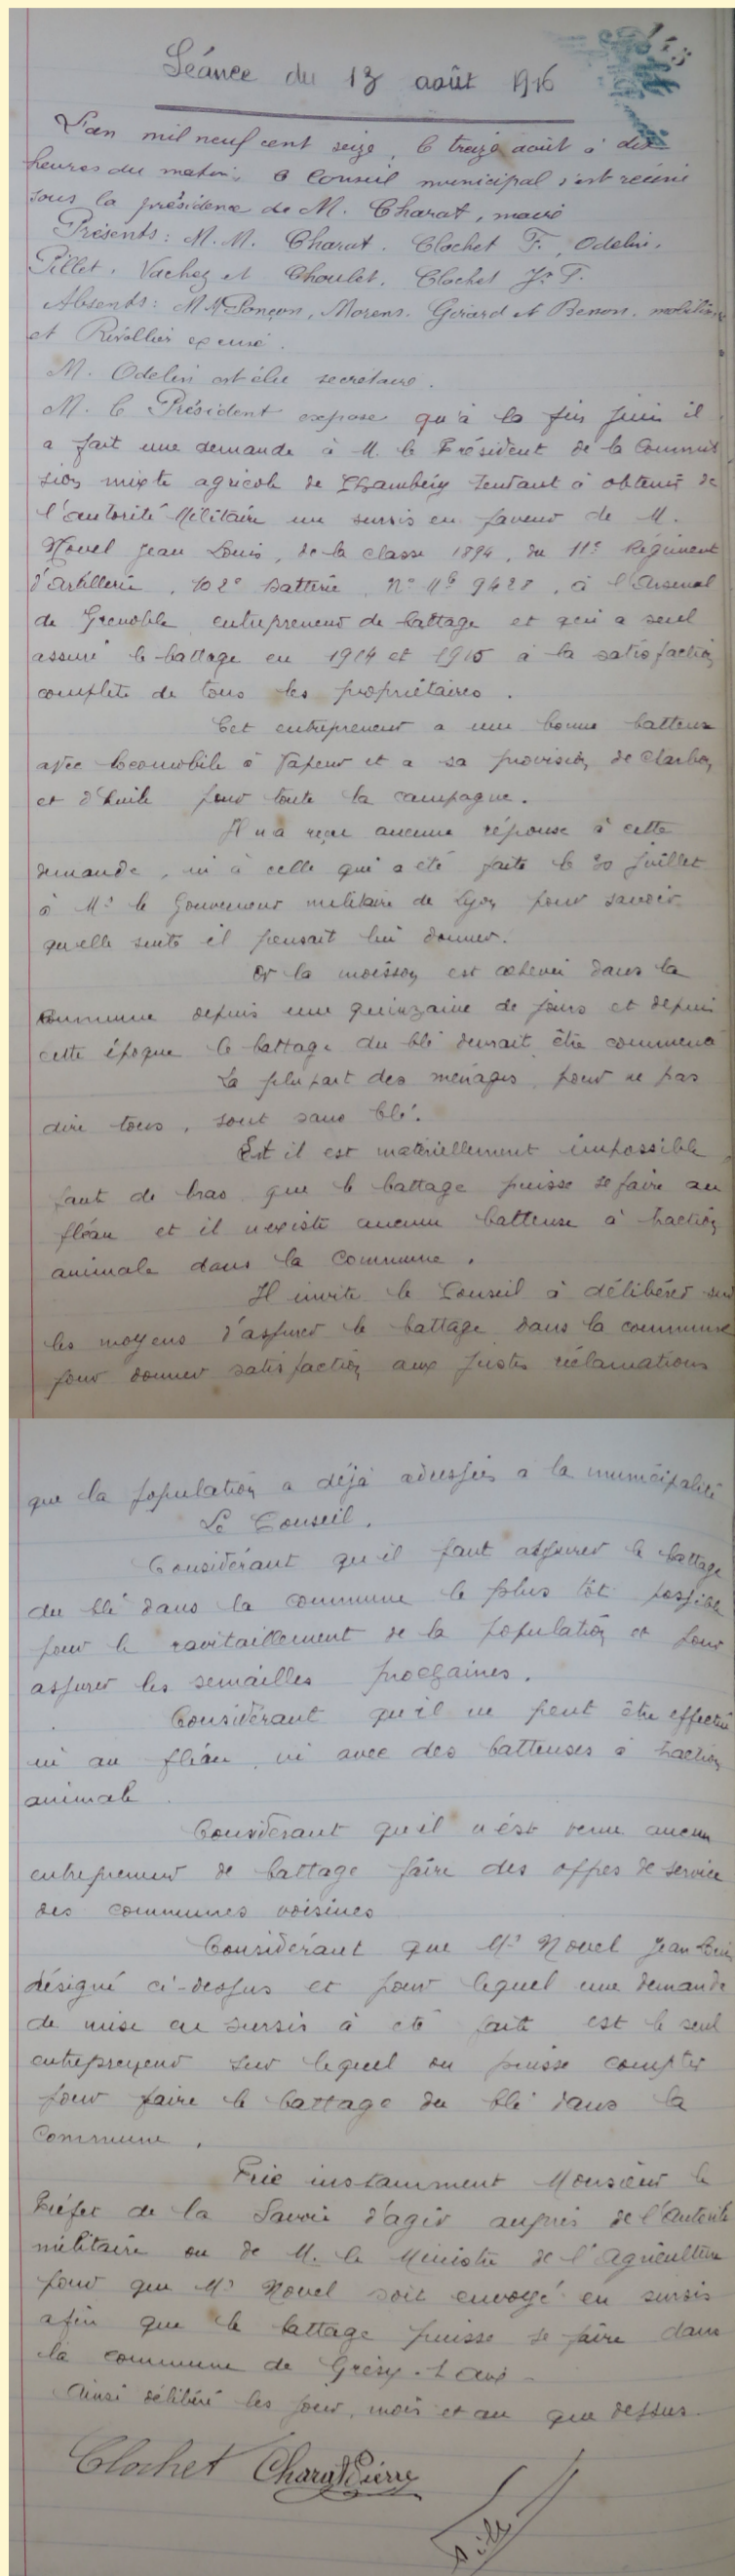 143
Séance du 13 août 1916
L'an mil neuf cent seize, le treize août à dix
heures du matin, le Conseil municipal s'est réuni
sous la présidence de M. Charat, maire
Présents: M.M. Charat. Clochet F., Odelin,
Pillet, Vachez et Choulet, Clochet J. F.
Absents: MM Ponçon, Morens, Girard et Benon, mobilisés
et Révollier excusé.
M. Odelin est élu secrétaire.
M. le Président expose qu'à la fin juin il
a fait une demande à M. le Président de la Commis
sion mixte agricole de Chambéry tendant à obtenir de
l'autorité Militaire un sursis en faveur de M.
Novel Jean Louis, de la classe 1894, du 11e Régiment
d'artillerie, 102e Batterie, No Mle 9428, à l'Arsenal
de Grenoble, entrepreneur de battage et qui a seul
assuré le battage en 1914 et 1915 à la satisfaction
complète de tous les propriétaires.
Cet entrepreneur a une bonne batteuse
avec locomobile à Vapeur et a sa provision de charbon
et d'huile pour toute la campagne.
Il n'a reçu aucune réponse à cette
demande, ni à celle qui a été faite le 30 juillet
à Mr le Gouverneur militaire de Lyon pour savoir
quelle suite il pensait lui donner.
Or la moisson est achevée dans la
commune depuis une quinzaine de jours et depuis
cette époque le battage du blé devrait être commencé
La plupart des ménages, pour ne pas
dire tous, sont sans blé.
Et il est matériellement impossible,
faut de bras que le battage puisse se faire au
fléau et il n'existe aucune batteuse à traction
animale dans la Commune.
Il invite le Conseil à délibérer sur
les moyens d'assurer le battage dans la commune
pour donner satisfaction aux justes réclamations
que la population a déjà adressées a la municipalité
Le Conseil,
Considérant qu'il faut assurer le battage
du blé dans la commune le plus tôt possible
pour le ravitaillement de la population et pour
assurer les semailles prochaines.
Considérant qu'il ne peut être effectué
ni au fléau, ni avec des batteuses à traction
animale.
Considérant qu'il n'ést venu aucun
entrepreneur de battage faire des offres de service
des communes voisines
Considérant que Mr Novel Jean Louis
désigné ci-dessus et pour lequel une demande
de mise en sursis à été faite est le seul
entrepreneur sur lequel on puisse compter
pour faire le battage du blé dans la
Commune.
Prie instamment Monsieur le
Préfet de la Savoie d'agir auprès de l'Autorité
militaire ou de M. le Ministre de l'Agriculture
pour que Mr Novel soit envoyé en sursis
afin que le battage puisse se faire dans
la commune de Grésy-s-Aix-
Ainsi délibéré les jour, mois et an que dessus.
Clochet Charat Pierre